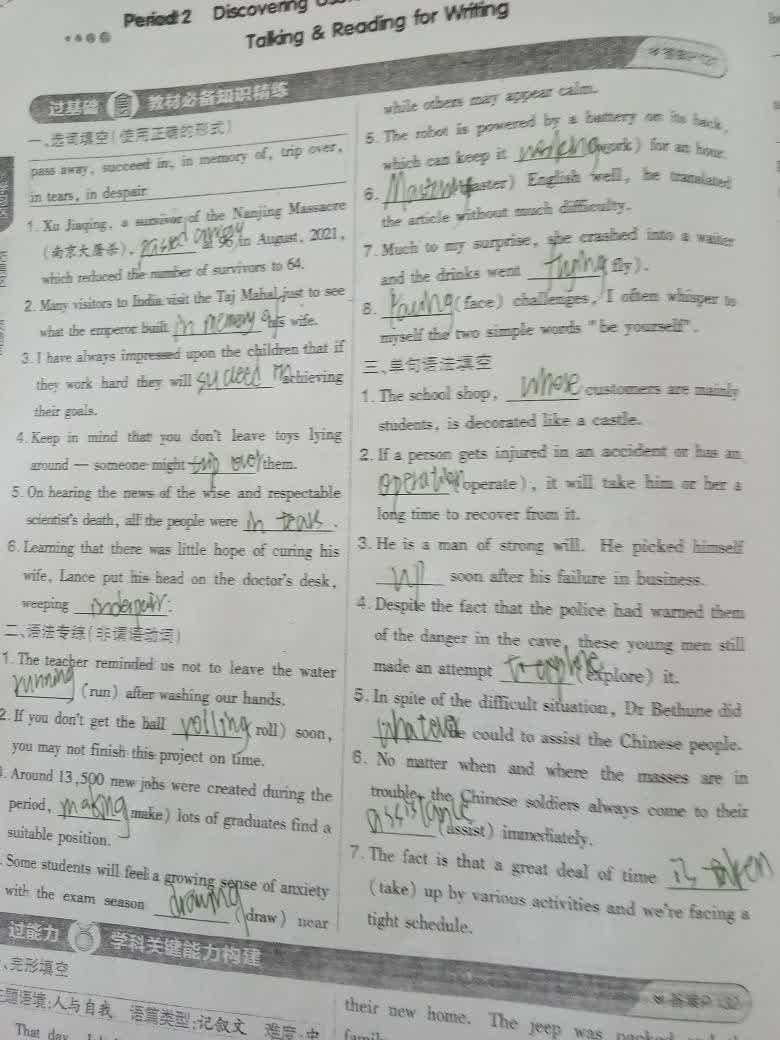 Period 2 Discovering
Talking & Reading for Writing
过基础 教材必备知识精练
一、选词填空(使用正确的形式)
pass away, succeed in, in memory of, trip over,
in tears, in despair
1. Xu Jiaqing, a survivor of the Nanjing Massacre
(南京大屠杀), passed away at 96 in August, 2021,
which reduced the number of survivors to 64.
2. Many visitors to India visit the Taj Mahal just to see
what the emperor built in memory of his wife.
3. I have always impressed upon the children that if
they work hard they will succeed in achieving
their goals.
4. Keep in mind that you don't leave toys lying
around — someone might trip over them.
5. On hearing the news of the wise and respectable
scientist's death, all the people were in tears.
6. Learning that there was little hope of curing his
wife, Lance put his head on the doctor's desk,
weeping
二、语法专练(非谓语动词)
1. The teacher reminded us not to leave the water
running (run) after washing our hands.
2. If you don't get the ball rolling roll) soon,
you may not finish this project on time.
. Around 13,500 new jobs were created during the
period, making make) lots of graduates find a
suitable position.
. Some students will feel a growing sense of anxiety
with the exam season drawing (draw) near
while others may appear calm.
5. The robot is powered by a battery on its back,
which can keep it working work) for an hour.
6. English well, he translated
the article without much difficulty.
7. Much to my surprise, she crashed into a waiter
and the drinks went flying fly).
8. Facing (face) challenges, I often whisper to
myself the two simple words "be yourself".
三、单句语法填空
1. The school shop, whose customers are mainly
students, is decorated like a castle.
2. If a person gets injured in an accident or has an
operation operate), it will take him or her a
long time to recover from it.
3. He is a man of strong will. He picked himself
up soon after his failure in business.
4. Despite the fact that the police had warned them
of the danger in the cave, these young men still
made an attempt to explore (explore) it.
5. In spite of the difficult situation, Dr Bethune did
whatever he could to assist the Chinese people.
6. No matter when and where the masses are in
trouble, the Chinese soldiers always come to their
assistance (assist) immediately.
7. The fact is that a great deal of time is taken
(take) up by various activities and we're facing a
tight schedule.
过能力 学科关键能力构建
答案P132
、完形填空
主题语境:人与自我 语篇类型:记叙文 难度:中
That day
their new home. The jeep was packed